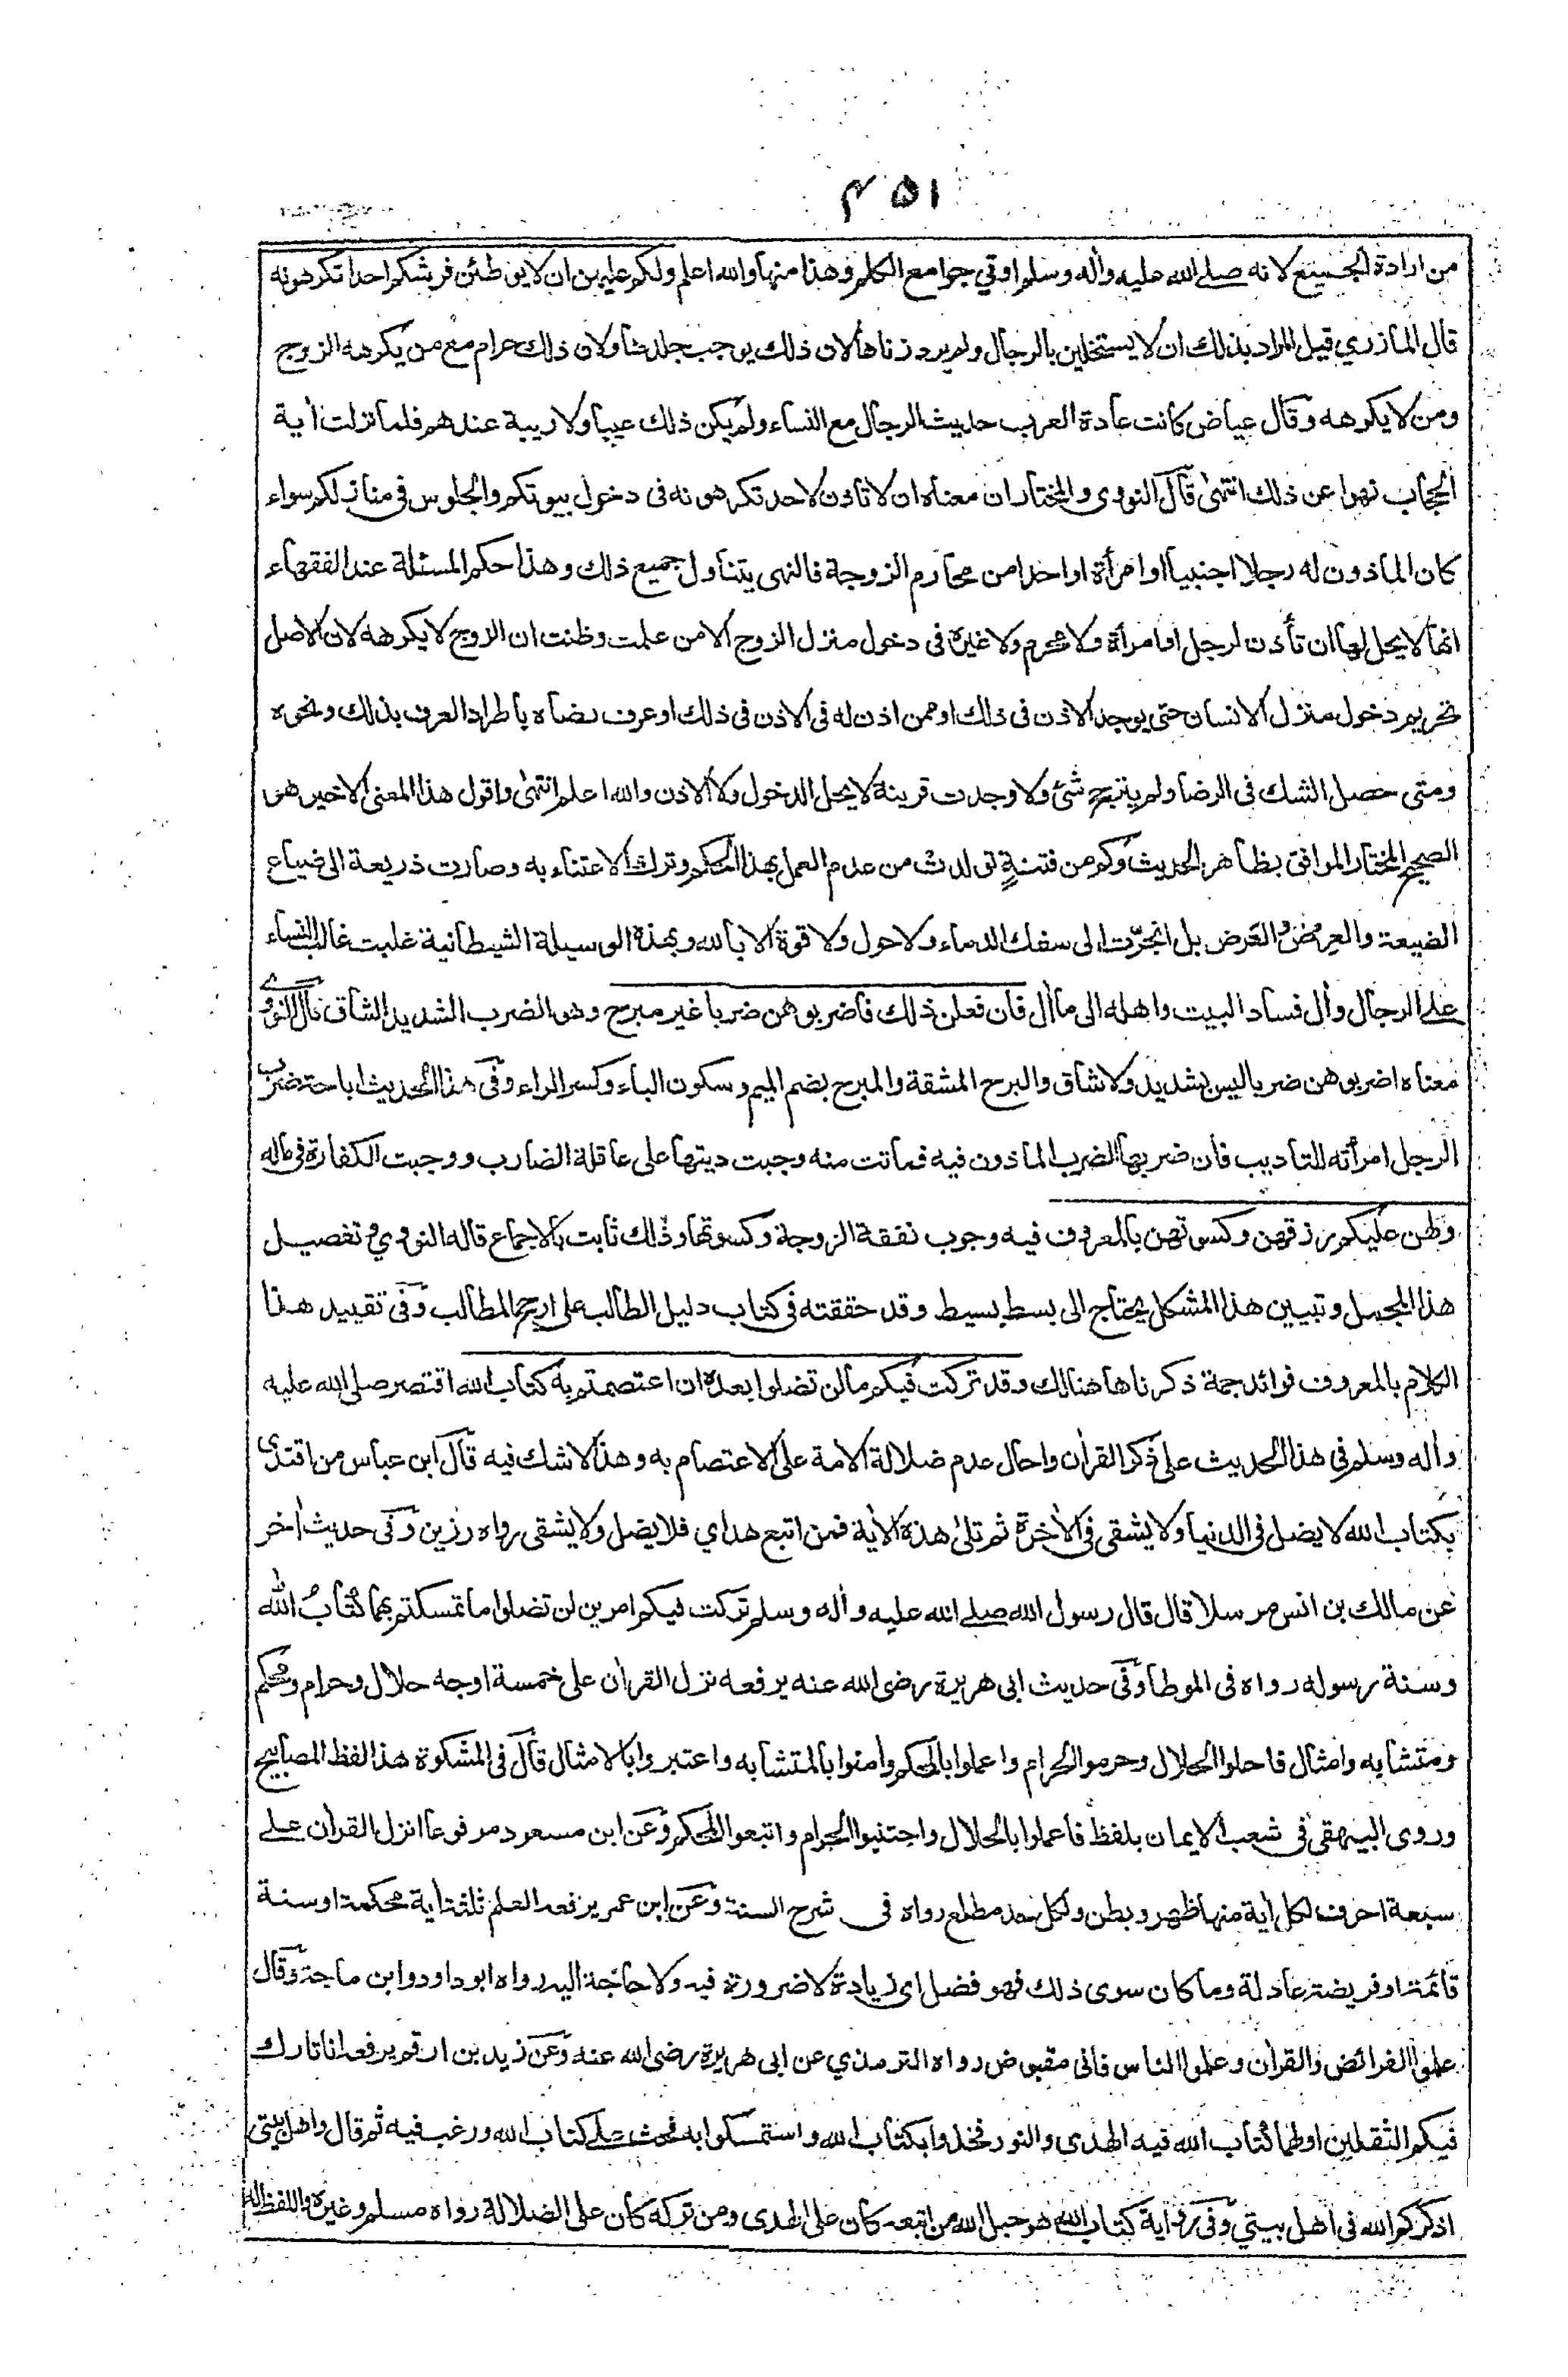 ۴۵۱
من ارادة الجميع لانه صلى الله عليه وأله وسلم اوتي جوامع الكلم وهذا منها والله اعلم ولكم عليهن ان لا يوطئن فرشكم احدا تكرهونه
قال المازري قيل المراد بذلك ان لا يستخلين بالرجال ولم يرد زناها لان ذلك يوجب جلدها ولان ذلك حرام مع من يكرهه الزوج
ومن لا يكرهه وقال عياض كانت عادة العرب حديث الرجال مع النساء ولم يكن ذلك عيبا ولا ريبة عندهم فلما نزلت أية
الحجاب نهوا عن ذلك انتهى قال النووي والمختار ان معناه ان لا تاذن لاحد تكرهونه فى دخول بيوتكم والجلوس فى منازلكم سواء
كان الماذون له رجلا اجنبيا او امرأة او احدا من محارم الزوجة فالنهى يتناول جميع ذلك وهذا حكم المسئلة عند الفقهاء
انها لا يحل لها ان تأذن لرجل او امرأة ولا محرم ولا غيره فى دخول منزل الزوج الا من علمت وظنت ان الزوج لا يكرهه لان الاصل
تحريم دخول منزل الانسان حتى يوجد الاذن فى ذلك او ممن اذن له فى الاذن فى ذلك او عرف رضاه باطراد العرف بذلك ونحوه
ومتى حصل الشك فى الرضا ولم يترجح شئ ولا وجدت قرينة لا يحل الدخول ولا الاذن والله اعلم انتهى واقول هذا المعنى الاخير هو
الصحيح المختار الموافق بظاهر الحديث وكم من فتنةٍ تولدت من عدم العمل بهذا الحكم وترك الاعتناء به وصارت ذريعة الى ضياع
الضيعة والعِرض والعَرض بل انجرّت الى سفك الدماء ولا حول ولا قوة الا بالله وبهذه الوسيلة الشيطانية غلبت غالب النساء
على الرجال وأل فساد البيت واهله الى ما أل فان فعلن ذلك فاضربوهن ضربا غير مبرح وهو الضرب الشديد الشاق قال النووي
معناه اضربوهن ضربا ليس بشديد ولا شاق والبرح المشقة والمبرح بضم الميم وسكون الباء وكسر الراء وفى هذا الحديث اباحة ضرب
الرجل امرأته للتاديب فان ضربها الضرب الماذون فيه فماتت منه وجبت ديتها على عاقلة الضارب ووجبت الكفارة فى ماله
ولهن عليكم رزقهن وكسوتهن بالمعروف فيه وجوب نفقة الزوجة وكسوتها وذلك ثابت بالاجماع قاله النووي وتفصيل
هذا المجمل وتبيين هذا المشكل يحتاج الى بسط بسيط وقد حققته فى كتاب دليل الطالب على ارجح المطالب وفى تقييد هذا
الكلام بالمعروف فوائد جمة ذكرناها هنالك وقد تركت فيكم ما لن تضلوا بعده ان اعتصمتم به كتاب الله اقتصر صلى الله عليه
وأله وسلم فى هذا الحديث على ذكر القرأن واحال عدم ضلالة الامة على الاعتصام به وهذا لا شك فيه قال ابن عباس من اقتدى
بكتاب الله لا يضل فى الدنيا ولا يشقى فى الأخرة ثم تلى هذه الأية فمن اتبع هداي فلا يضل ولا يشقى رواه رزين وفى حديث أخر
عن مالك بن انس مرسلا قال قال رسول الله صلى الله عليه وأله وسلم تركت فيكم امرين لن تضلوا ما تمسكتم بهما كتابُ الله
وسنة رسوله رواه فى الموطا وفى حديث ابى هريرة رضى الله عنه يرفعه نزل القرأن على خمسة اوجه حلال وحرام ومحكم
ومتشابه وامثال فاحلوا الحلال وحرموا الحرام واعملوا بالمحكم وأمنوا بالمتشابه واعتبروا بالامثال قال فى المشكوة هذا لفظ المصابيح
وروى البيهقى فى شعب الايمان بلفظ فاعملوا بالحلال واجتنبوا الحرام واتبعوا المحكم وعن ابن مسعود مرفوعا انزل القرأن على
سبعة احرف لكل أية منها ظهر وبطن ولكل حد مطلع رواه فى شرح السنة وعن ابن عمر يرفعه العلم ثلثة أية محكمة او سنة
قائمة او فريضة عادلة وما كان سوى ذلك فهو فضل اى زيادة لا ضرورة فيه ولا حاجة اليه رواه ابو داود وابن ماجة وقال
علموا الفرائض والقرأن وعلموا الناس فانى مقبوض رواه الترمذي عن ابى هريرة رضى الله عنه وعن زيد بن ارقم يرفعه انا تارك
فيكم الثقلين اولهما كتاب الله فيه الهدى والنور فخذوا بكتاب الله واستمسكوا به فحث على كتاب الله ورغب فيه ثم قال واهل بيتى
اذكركم الله فى اهل بيتي وفى رواية كتاب الله هو حبل الله من اتبعه كان على الهدى ومن تركه كان على الضلالة رواه مسلم وغيره واللفظ له